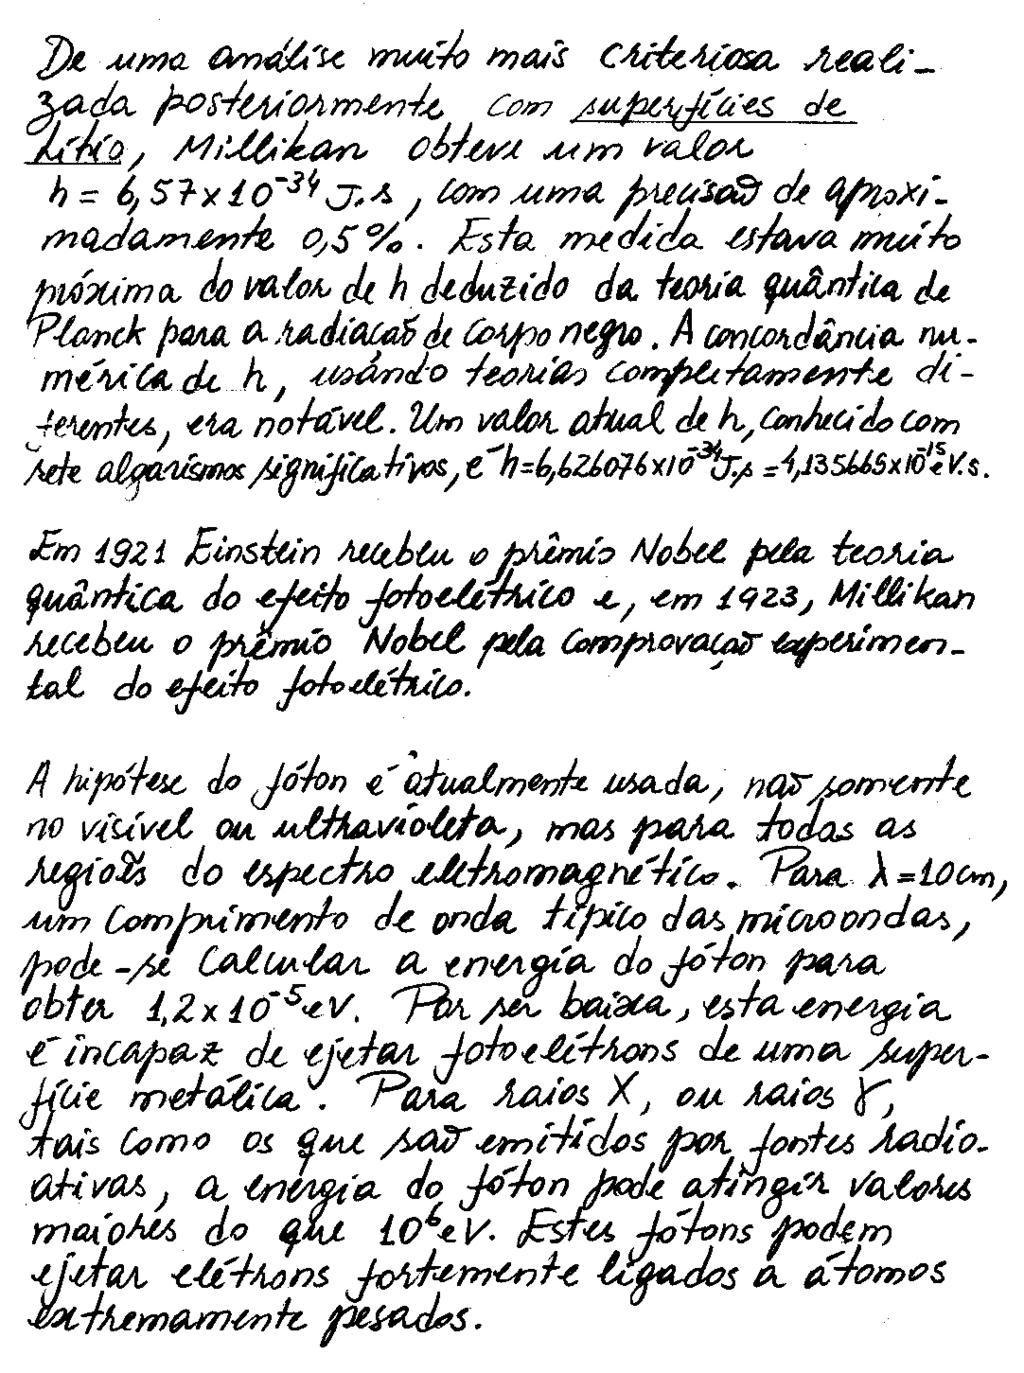 De uma análise muito mais criteriosa reali-
zada posteriormente, com superfícies de
Lítio, Millikan obteve um valor
h = 6,57 x 10⁻³⁴ J.s, com uma precisão de aproxi-
madamente 0,5%. Esta medida estava muito
próxima do valor de h deduzido da teoria quântica de
Planck para a radiação de corpo negro. A concordância nu-
mérica de h, usando teorias completamente di-
ferentes, era notável. Um valor atual de h, conhecido com
sete algarismos significativos, é h=6,626076x10⁻³⁴J.s = 4,135665x10⁻¹⁵eV.s.
Em 1921 Einstein recebeu o prêmio Nobel pela teoria
quântica do efeito fotoelétrico e, em 1923, Millikan
recebeu o prêmio Nobel pela comprovação experimen-
tal do efeito fotoelétrico.
A hipótese do fóton é atualmente usada, não somente
no visível ou ultravioleta, mas para todas as
regiões do espectro eletromagnético. Para λ=10cm,
um comprimento de onda típico das microondas,
pode-se calcular a energia do fóton para
obter 1,2 x 10⁻⁵ eV. Por ser baixa, esta energia
é incapaz de ejetar fotoelétrons de uma super-
fície metálica. Para raios X, ou raios γ,
tais como os que são emitidos por fontes radio-
ativas, a energia do fóton pode atingir valores
maiores do que 10⁶ eV. Estes fótons podem
ejetar elétrons fortemente ligados a átomos
extremamente pesados.